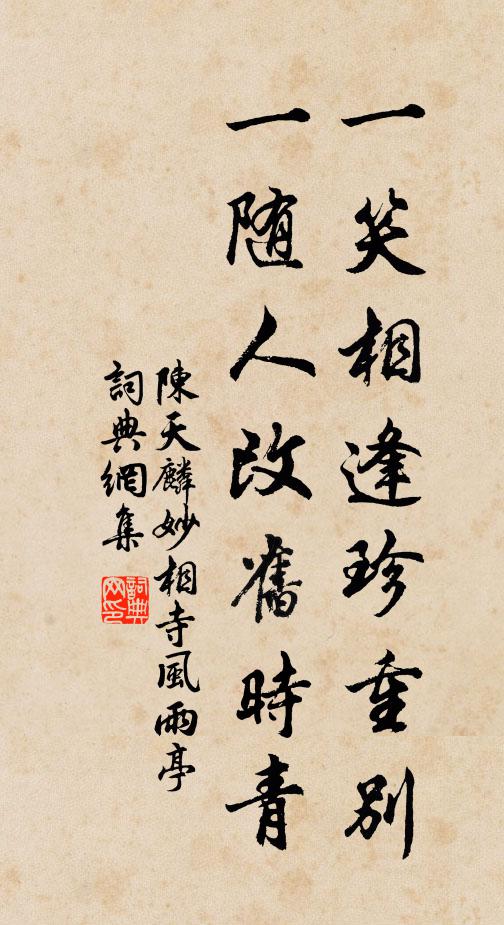 一笑相逢珍重别
一随人改舊時青
陳天麟妙相寺風雨亭
詞典網集
詞典
网印